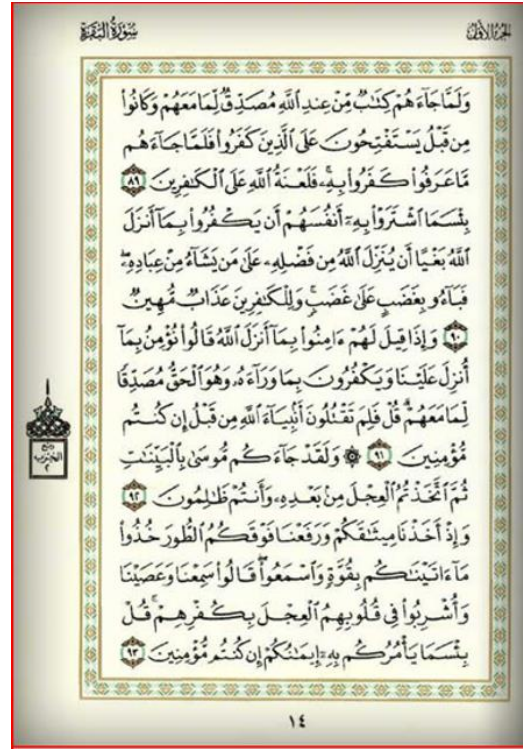 الجزء الأول
سورة البقرة
وَلَمَّا جَآءَهُمْ كِتَٰبٌ مِّنْ عِندِ ٱللَّهِ مُصَدِّقٌ لِّمَا مَعَهُمْ وَكَانُوا۟
مِن قَبْلُ يَسْتَفْتِحُونَ عَلَى ٱلَّذِينَ كَفَرُوا۟ فَلَمَّا جَآءَهُم
مَّا عَرَفُوا۟ كَفَرُوا۟ بِهِۦ ۚ فَلَعْنَةُ ٱللَّهِ عَلَى ٱلْكَٰفِرِينَ ٨٩
بِئْسَمَا ٱشْتَرَوْا۟ بِهِۦٓ أَنفُسَهُمْ أَن يَكْفُرُوا۟ بِمَآ أَنزَلَ
ٱللَّهُ بَغْيًا أَن يُنَزِّلَ ٱللَّهُ مِن فَضْلِهِۦ عَلَىٰ مَن يَشَآءُ مِنْ عِبَادِهِۦ ۖ
فَبَآءُو بِغَضَبٍ عَلَىٰ غَضَبٍ ۚ وَلِلْكَٰفِرِينَ عَذَابٌ مُّهِينٌ
٩٠ وَإِذَا قِيلَ لَهُمْ ءَامِنُوا۟ بِمَآ أَنزَلَ ٱللَّهُ قَالُوا۟ نُؤْمِنُ بِمَآ
أُنزِلَ عَلَيْنَا وَيَكْفُرُونَ بِمَا وَرَآءَهُۥ وَهُوَ ٱلْحَقُّ مُصَدِّقًا
لِّمَا مَعَهُمْ ۗ قُلْ فَلِمَ تَقْتُلُونَ أَنۢبِيَآءَ ٱللَّهِ مِن قَبْلُ إِن كُنتُم
مُّؤْمِنِينَ ٩١ ۞ وَلَقَدْ جَآءَكُم مُّوسَىٰ بِٱلْبَيِّنَٰتِ
ثُمَّ ٱتَّخَذْتُمُ ٱلْعِجْلَ مِنۢ بَعْدِهِۦ وَأَنتُمْ ظَٰلِمُونَ ٩٢
وَإِذْ أَخَذْنَا مِيثَٰقَكُمْ وَرَفَعْنَا فَوْقَكُمُ ٱلطُّورَ خُذُوا۟
مَآ ءَاتَيْنَٰكُم بِقُوَّةٍ وَٱسْمَعُوا۟ ۖ قَالُوا۟ سَمِعْنَا وَعَصَيْنَا
وَأُشْرِبُوا۟ فِى قُلُوبِهِمُ ٱلْعِجْلَ بِكُفْرِهِمْ ۚ قُلْ
بِئْسَمَا يَأْمُرُكُم بِهِۦٓ إِيمَٰنُكُمْ إِن كُنتُم مُّؤْمِنِينَ ٩٣
ربع
الحزب
٢
١٤